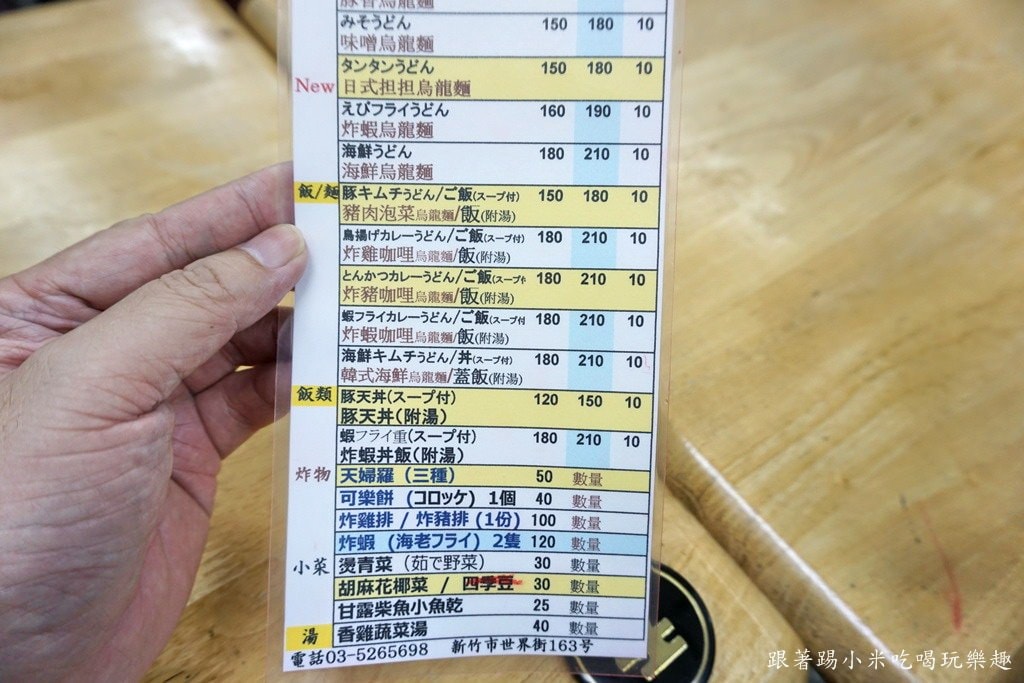 豚骨烏龍麵
みそうどん 150 180 10
味噌烏龍麵
New
タンタンうどん 150 180 10
日式担担烏龍麵
えびフライうどん 160 190 10
炸蝦烏龍麵
海鮮うどん 180 210 10
海鮮烏龍麵
飯/麵
豚キムチうどん/ご飯(スープ付) 150 180 10
豬肉泡菜烏龍麵/飯(附湯)
鳥揚げカレーうどん/ご飯(スープ付) 180 210 10
炸雞咖哩烏龍麵/飯(附湯)
とんかつカレーうどん/ご飯(スープ付 180 210 10
炸豬咖哩烏龍麵/飯(附湯)
蝦フライカレーうどん/ご飯(スープ付 180 210 10
炸蝦咖哩烏龍麵/飯(附湯)
海鮮キムチうどん/丼(スープ付) 180 210 10
韓式海鮮烏龍麵/蓋飯(附湯)
飯類
豚天丼(スープ付) 120 150 10
豚天丼(附湯)
蝦フライ重(スープ付) 180 210 10
炸蝦丼飯(附湯)
炸物
天婦羅 (三種) 50 數量
可樂餅 (コロッケ) 1個 40 數量
炸雞排 / 炸豬排 (1份) 100 數量
炸蝦 (海老フライ) 2隻 120 數量
小菜
燙青菜 (茹で野菜) 30 數量
胡麻花椰菜 / 四季豆 30 數量
甘露柴魚小魚乾 25 數量
湯
香雞蔬菜湯 40 數量
電話03-5265698 新竹市世界街163号
跟著踢小米吃喝玩樂趣